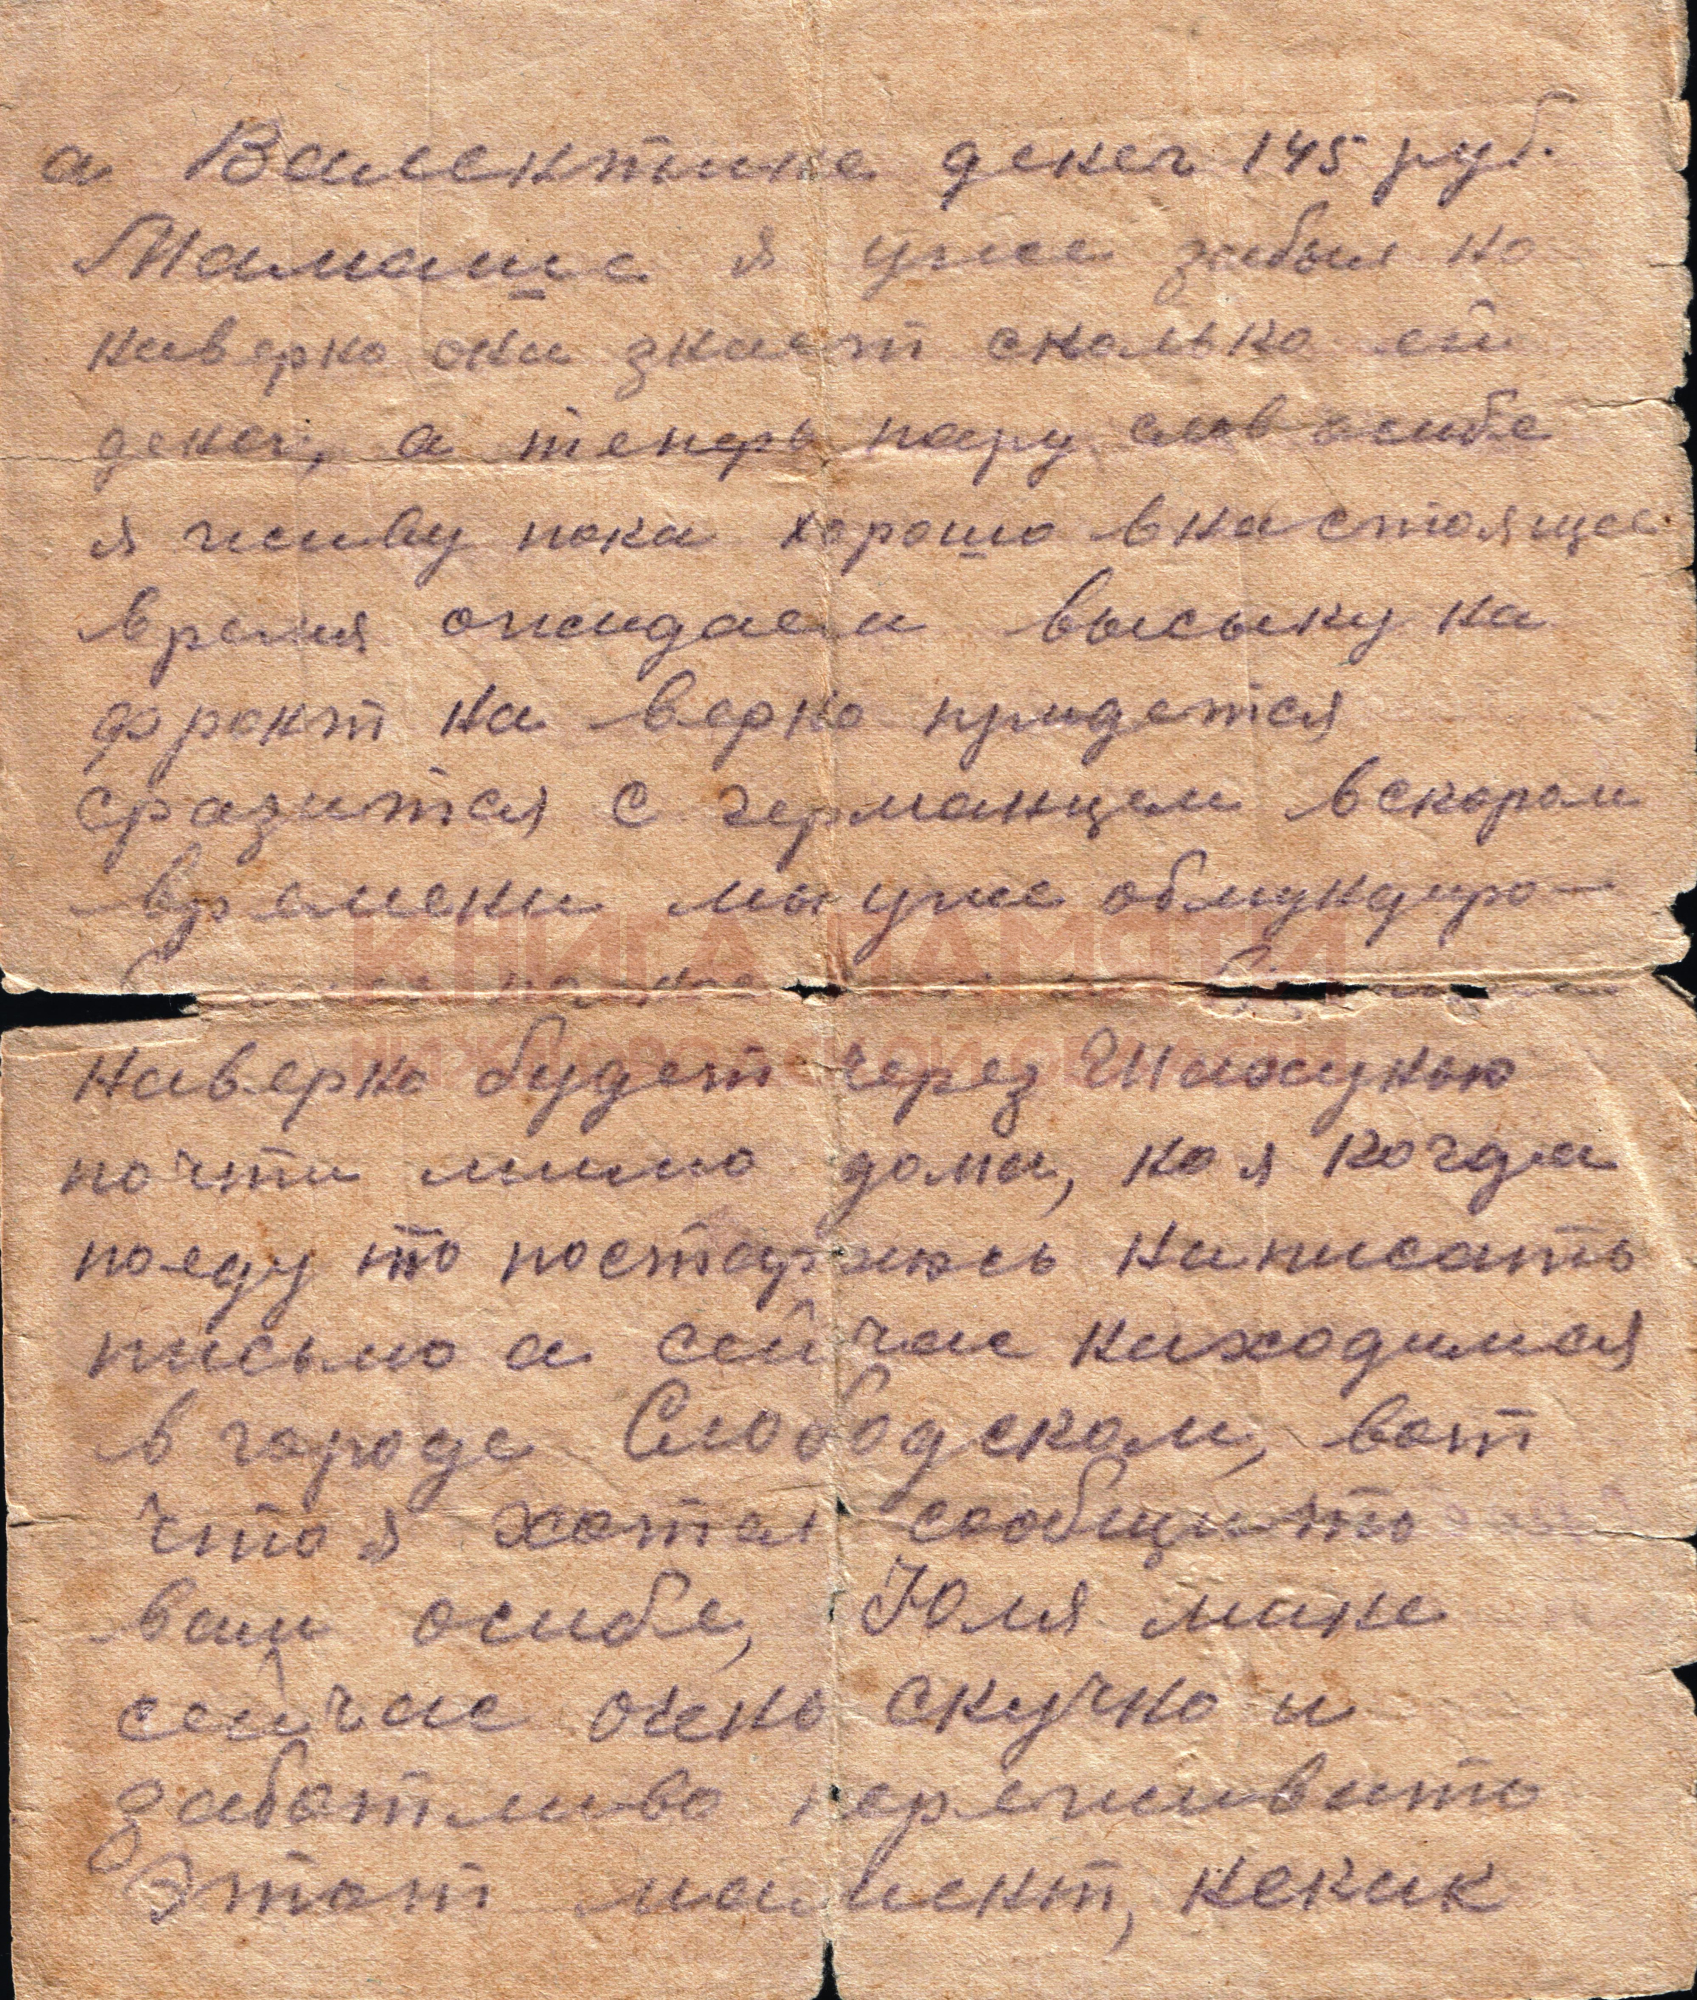 а Валентине денег 145 руб.
Мамаше я уже забыл но
наверно она знает сколько ей
денег, а теперь пару слов осибе
я живу пока хорошо внастоящее
время ожидаем высыку на
фронт на верно придется
сразится с германцем вскором
времени мы уже обмундиро-
КНИГА ПАМЯТИ
НИЖЕГОРОДСКОЙ ОБЛАСТИ
наверно будет через Шахунью
почти мимо дома, но я когда
поеду то постараюсь написать
письмо а сейчас находимся
в городе Слободском, вот
что я хотел сообщить
вам осибе, Юля мине
сейчас очень скучно и
заботливо переживать
Этот момент, некак